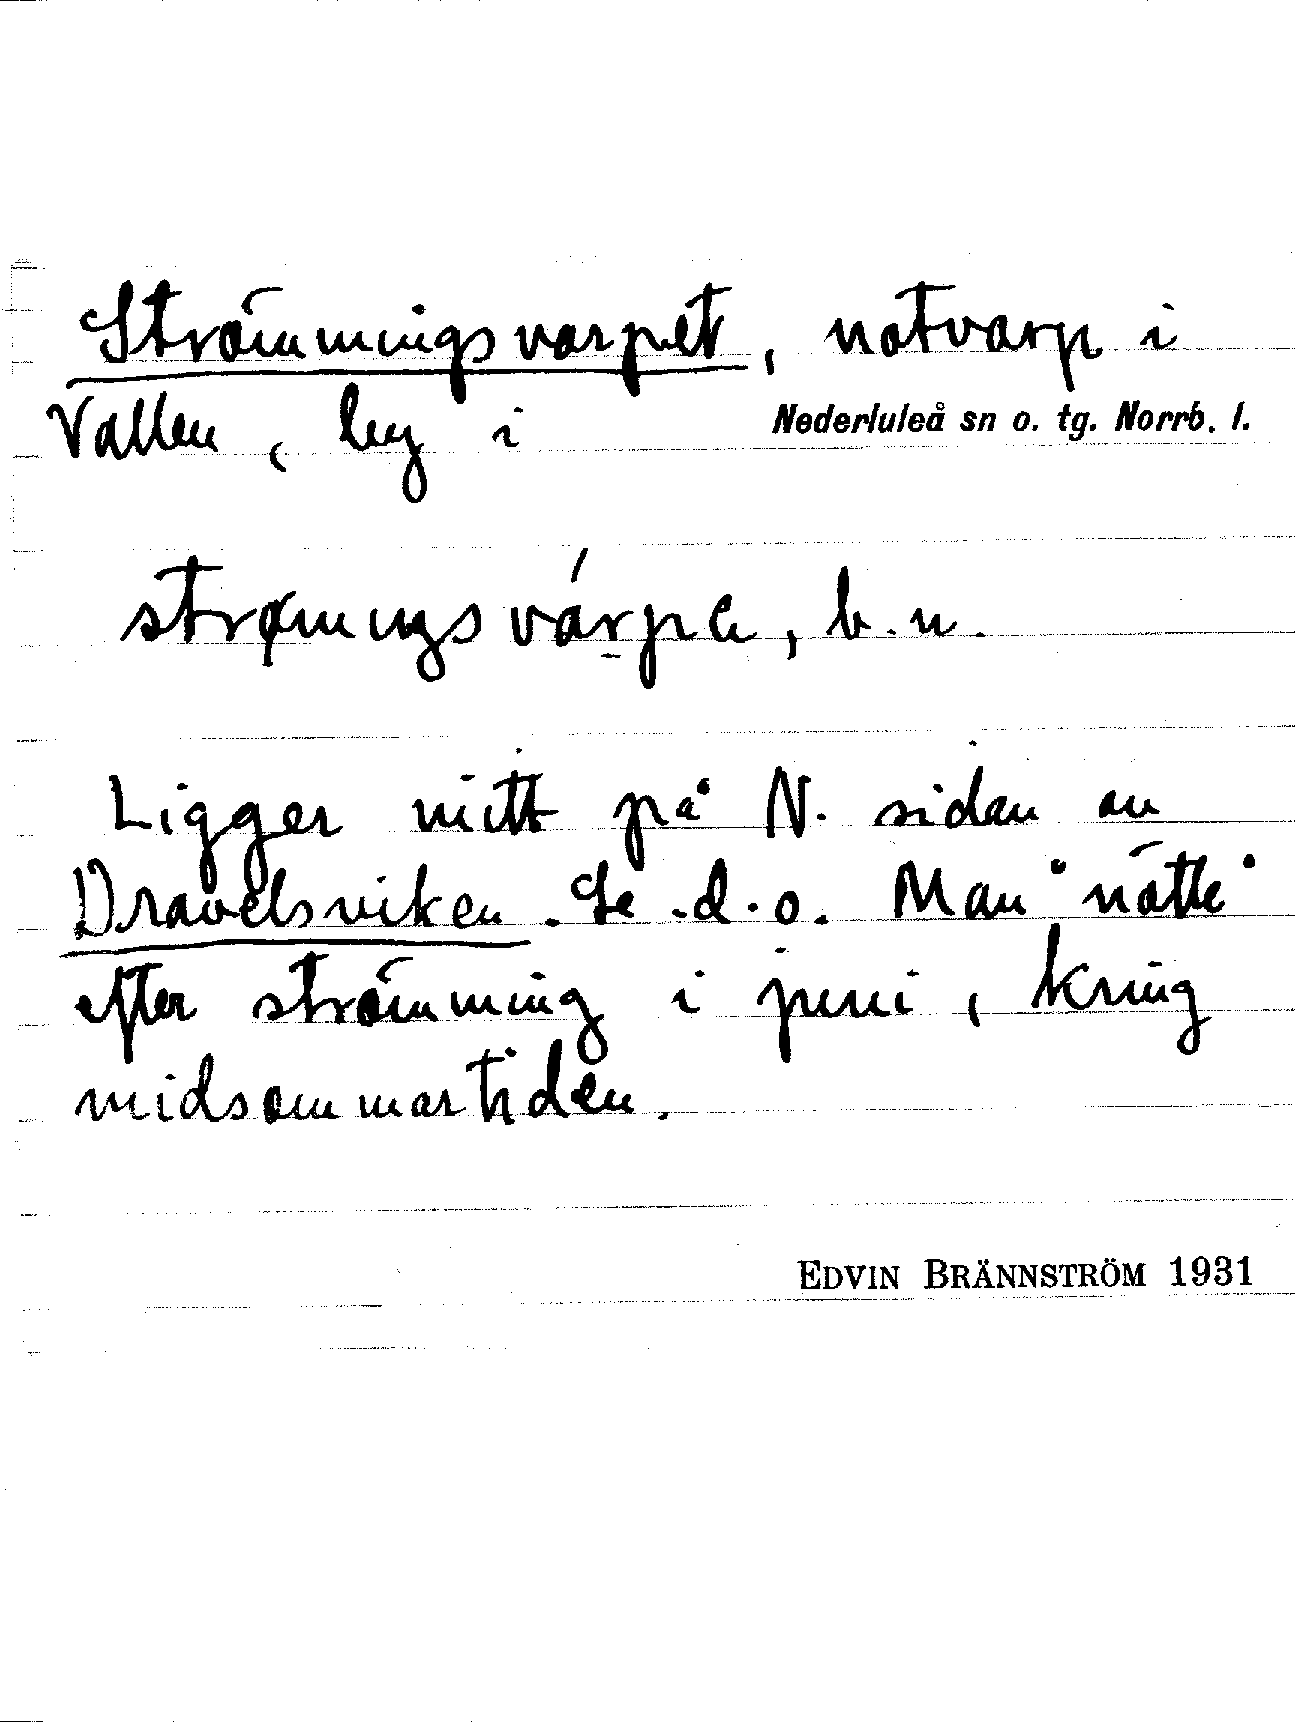 Strömmingsvarpet, notvarp i
Vallen, by i Nederluleå sn o. tg. Norrb. l.
strømıŋsvárpa, b.n.
Ligger mitt på N. sidan av
Dravelsviken. Se d.o. Man "nötte"
efter strömming i juni, kring
midsommartiden.
EDVIN BRÄNNSTRÖM 1931